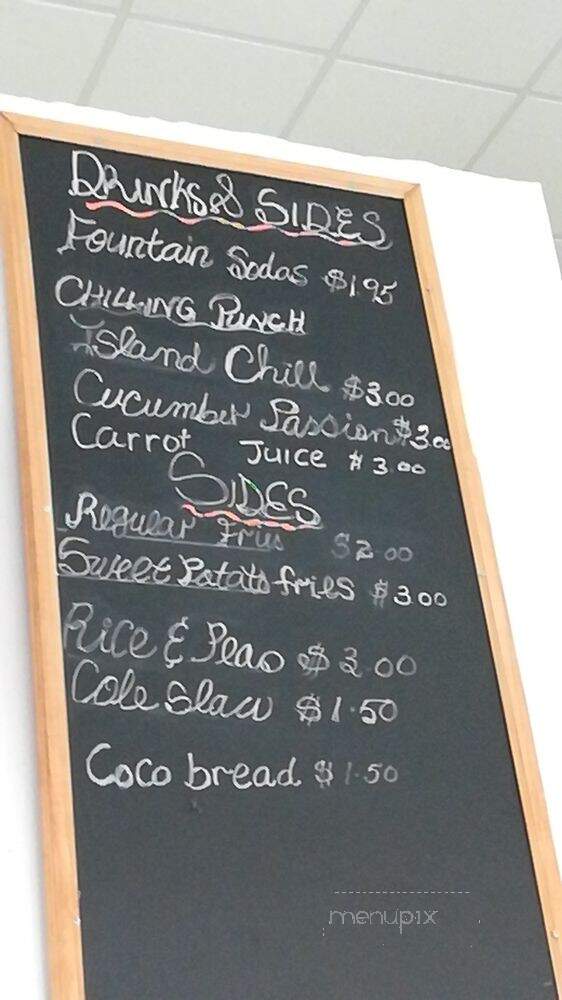 DRINKS & SIDES
Fountain Sodas $1.95
CHILLING PUNCH
Island Chill $3.00
Cucumber Passion $3.00
Carrot Juice $3.00
SIDES
Regular Fries $2.00
Sweet Potato fries $3.00
Rice & Peas $3.00
Cole Slaw $1.50
Coco bread $1.50
menupix